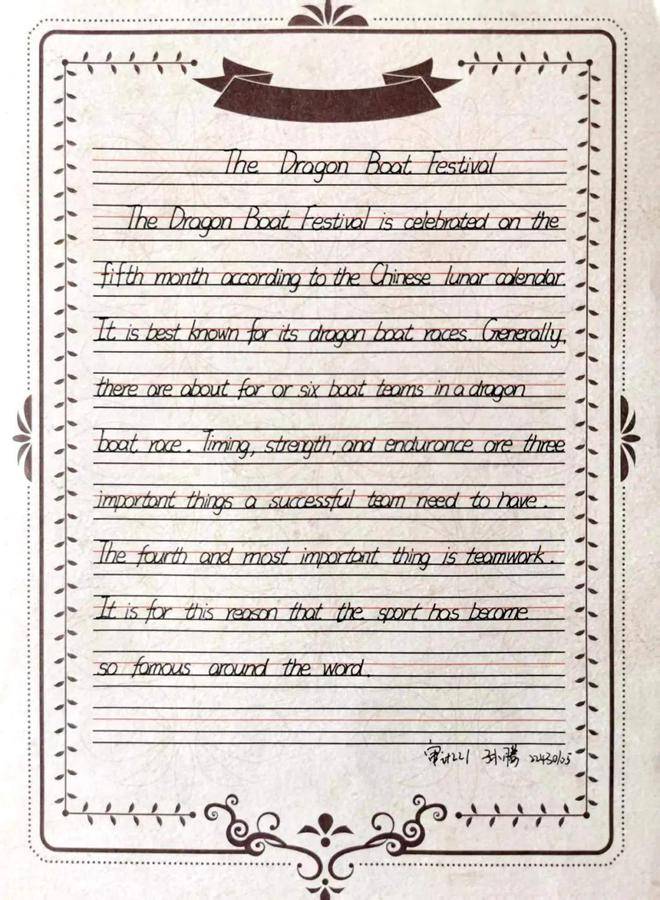 The Dragon Boat Festival
The Dragon Boat Festival is celebrated on the
fifth month according to the Chinese lunar calendar.
It is best known for its dragon boat races. Generally,
there are about for or six boat teams in a dragon
boat race. Timing, strength, and endurance are three
important things a successful team need to have.
The fourth and most important thing is teamwork.
It is for this reason that the sport has become
so famous around the word.
审计221 孙腾